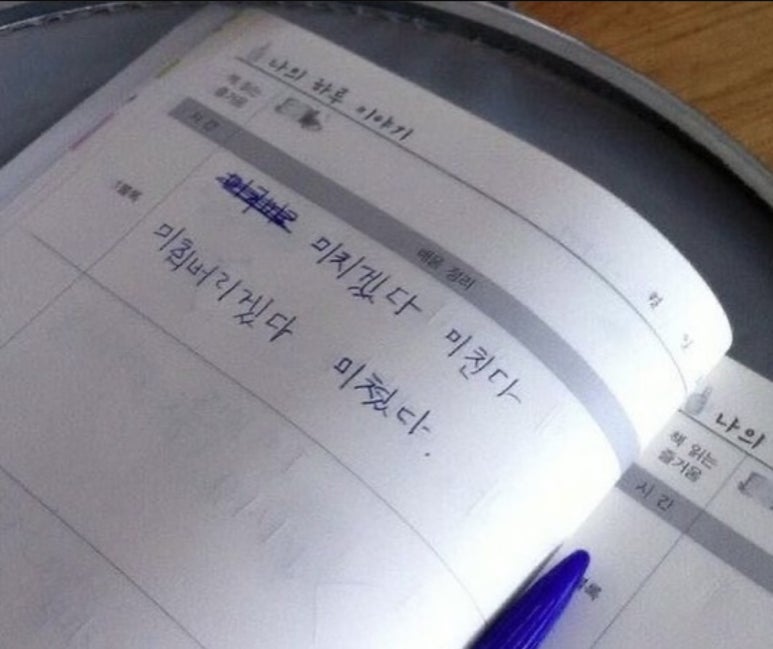 나의 하루 이야기
책 읽는
즐거움
시간
배움 정리
월
1블록
미치겠다 미친다
미쳐버리겠다 미쳤다.
나의
책 읽는
즐거움
시간